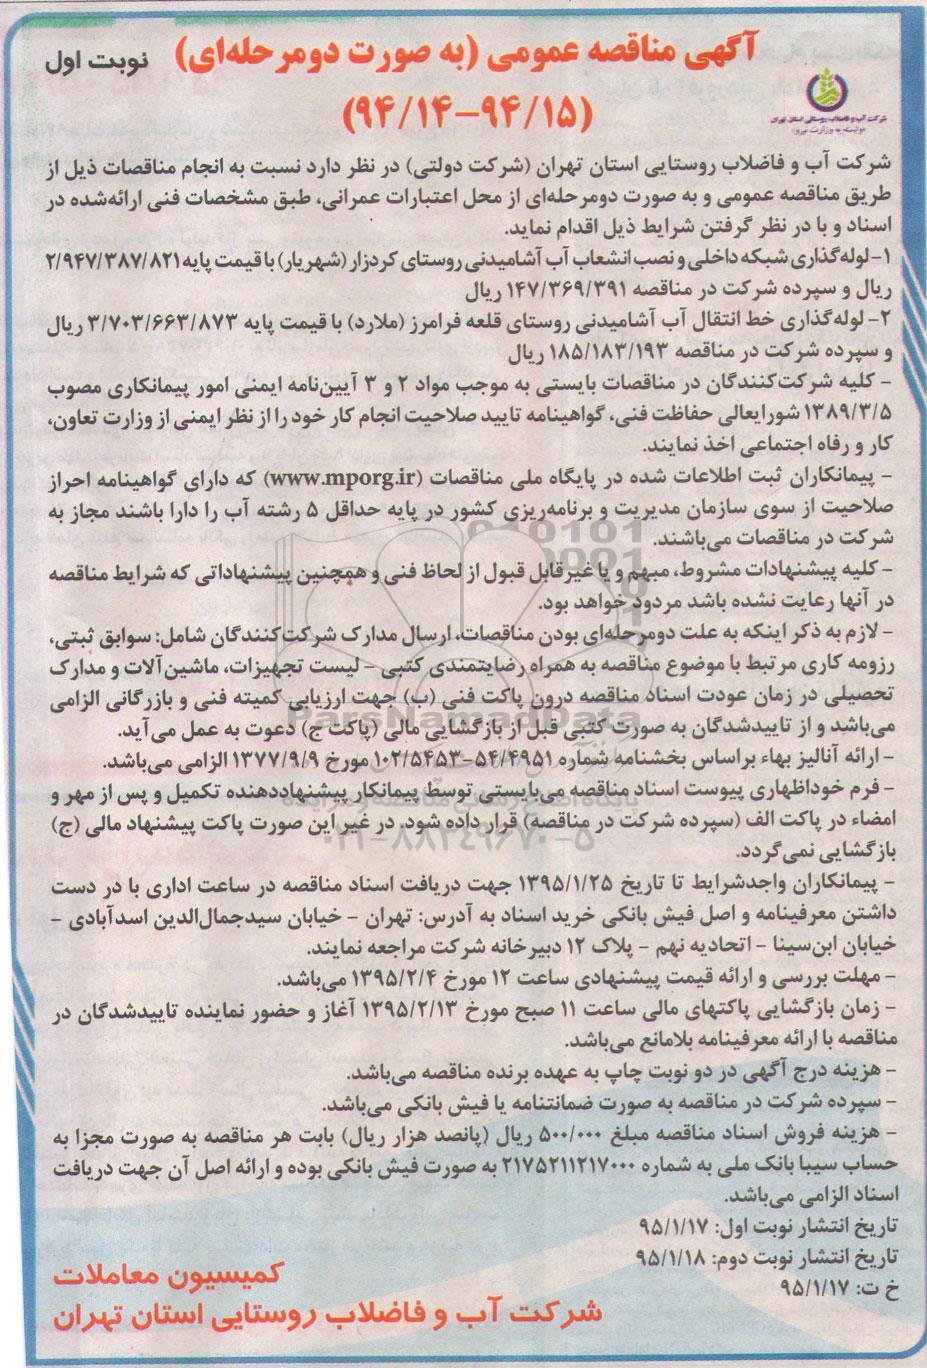 آگهی مناقصه عمومی (به صورت دومرحله‌ای) نوبت اول
(۹۴/۱۴-۹۴/۱۵)
شرکت آب و فاضلاب روستایی استان تهران
وابسته به وزارت نیرو
شرکت آب و فاضلاب روستایی استان تهران (شرکت دولتی) در نظر دارد نسبت به انجام مناقصات ذیل از
طریق مناقصه عمومی و به صورت دومرحله‌ای از محل اعتبارات عمرانی، طبق مشخصات فنی ارائه‌شده در
اسناد و با در نظر گرفتن شرایط ذیل اقدام نماید.
۱- لوله‌گذاری شبکه داخلی و نصب انشعاب آب آشامیدنی روستای کردزار (شهریار) با قیمت پایه ۲/۹۴۷/۳۸۷/۸۲۱
ریال و سپرده شرکت در مناقصه ۱۴۷/۳۶۹/۳۹۱ ریال
۲- لوله‌گذاری خط انتقال آب آشامیدنی روستای قلعه فرامرز (ملارد) با قیمت پایه ۳/۷۰۳/۶۶۳/۸۷۳ ریال
و سپرده شرکت در مناقصه ۱۸۵/۱۸۳/۱۹۳ ریال
- کلیه شرکت‌کنندگان در مناقصات بایستی به موجب مواد ۲ و ۳ آیین‌نامه ایمنی امور پیمانکاری مصوب
۱۳۸۹/۳/۵ شورایعالی حفاظت فنی، گواهینامه تایید صلاحیت انجام کار خود را از نظر ایمنی از وزارت تعاون،
کار و رفاه اجتماعی اخذ نمایند.
- پیمانکاران ثبت اطلاعات شده در پایگاه ملی مناقصات (www.mporg.ir) که دارای گواهینامه احراز
صلاحیت از سوی سازمان مدیریت و برنامه‌ریزی کشور در پایه حداقل ۵ رشته آب را دارا باشند مجاز به
شرکت در مناقصات می‌باشند.
- کلیه پیشنهادات مشروط، مبهم و یا غیرقابل قبول از لحاظ فنی و همچنین پیشنهاداتی که شرایط مناقصه
در آنها رعایت نشده باشد مردود خواهد بود.
- لازم به ذکر اینکه به علت دومرحله‌ای بودن مناقصات، ارسال مدارک شرکت‌کنندگان شامل: سوابق ثبتی،
رزومه کاری مرتبط با موضوع مناقصه به همراه رضایتمندی کتبی - لیست تجهیزات، ماشین‌آلات و مدارک
تحصیلی در زمان عودت اسناد مناقصه درون پاکت فنی (ب) جهت ارزیابی کمیته فنی و بازرگانی الزامی
می‌باشد و از تاییدشدگان به صورت کتبی قبل از بازگشایی مالی (پاکت ج) دعوت به عمل می‌آید.
- ارائه آنالیز بهاء براساس بخشنامه شماره ۵۴/۴۹۵۱-۱۰۲/۵۴۵۳ مورخ ۱۳۷۷/۹/۹ الزامی می‌باشد.
- فرم خوداظهاری پیوست اسناد مناقصه می‌بایستی توسط پیمانکار پیشنهاددهنده تکمیل و پس از مهر و
امضاء در پاکت الف (سپرده شرکت در مناقصه) قرار داده شود. در غیر این صورت پاکت پیشنهاد مالی (ج)
بازگشایی نمی‌گردد.
- پیمانکاران واجدشرایط تا تاریخ ۱۳۹۵/۱/۲۵ جهت دریافت اسناد مناقصه در ساعت اداری با در دست
داشتن معرفینامه و اصل فیش بانکی خرید اسناد به آدرس: تهران - خیابان سیدجمال‌الدین اسدآبادی -
خیابان ابن‌سینا - اتحادیه نهم - پلاک ۱۲ دبیرخانه شرکت مراجعه نمایند.
- مهلت بررسی و ارائه قیمت پیشنهادی ساعت ۱۲ مورخ ۱۳۹۵/۲/۴ می‌باشد.
- زمان بازگشایی پاکتهای مالی ساعت ۱۱ صبح مورخ ۱۳۹۵/۲/۱۳ آغاز و حضور نماینده تاییدشدگان در
مناقصه با ارائه معرفینامه بلامانع می‌باشد.
- هزینه درج آگهی در دو نوبت چاپ به عهده برنده مناقصه می‌باشد.
- سپرده شرکت در مناقصه به صورت ضمانتنامه یا فیش بانکی می‌باشد.
- هزینه فروش اسناد مناقصه مبلغ ۵۰۰/۰۰۰ ریال (پانصد هزار ریال) بابت هر مناقصه به صورت مجزا به
حساب سیبا بانک ملی به شماره ۲۱۷۵۲۱۱۲۱۷۰۰۰ به صورت فیش بانکی بوده و ارائه اصل آن جهت دریافت
اسناد الزامی می‌باشد.
تاریخ انتشار نوبت اول: ۹۵/۱/۱۷
تاریخ انتشار نوبت دوم: ۹۵/۱/۱۸
خ ت: ۹۵/۱/۱۷
کمیسیون معاملات
شرکت آب و فاضلاب روستایی استان تهران
ParsNamadData
۰۲۱-۸۸۳۴۹۶۷۰-۵